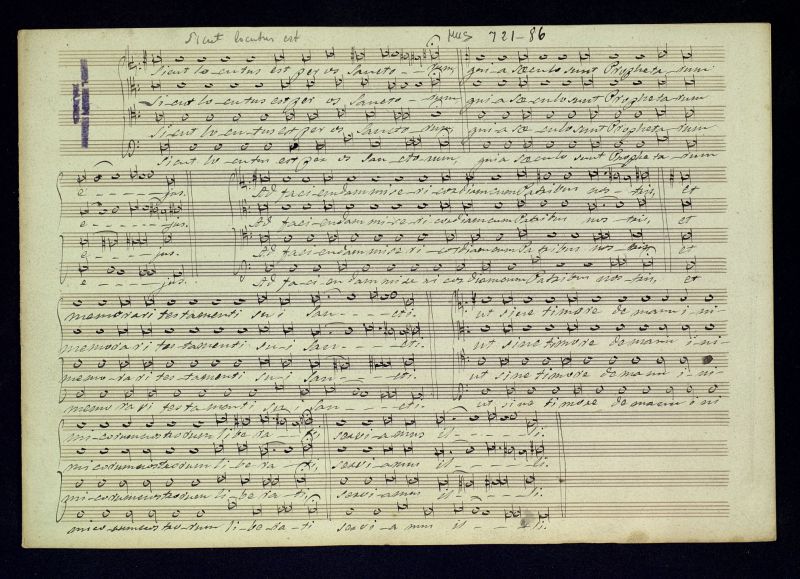 Sicut locutus est Mus 721-86
Sicut lo-cutus est per os Sancto--rum, qui a Sæculo sunt Propheta-rum
Sicut lo-cu-tus est per os Sancto--rum qui a Sæculo sunt Propheta-rum
Sicut lo-cu-tus est per os Sancto-rum qui a Sæ-culo sunt Propheta-rum
Sicut lo-cu-tus est per os San-cto-rum, qui a Sæculo sunt Propheta-rum
e-----jus. Ad faci-endam mise-ri-cordiam cum Patribus nos-tris, et
e-----jus. Ad faci-endam mi-se-ri-cordiam cum Patribus nos-tris, et
e-----jus. Ad faci-endam mise ri-cordiam cum Pa tribus nos-tris et
e-----jus. Ad fa-ci-en dam mise ri cordiam cum Patribus nos-tris, et
memorari testamenti su-i San----cti. ut sine timore de manu i-ni-
memorari tes-tamenti su-i San----cti. ut sine timore de manu i-ni-
memo-rari tes-tamenti su-i San----cti. ut sine timore de manu i-ni-
memo ra ri tes ta-menti su-i San----cti. ut si-ne ti more de manu i ni
mi-corum nostrorum libera--ti, servi-amus il----li.
mi corum nostrorum li-be-ra-ti, servi-amus il----li.
mi-corum nostrorum li-be-ra--ti, servi-amus il----li.
mico-rum nos tro-rum li-be-ra-ti servi-a mus il----li.